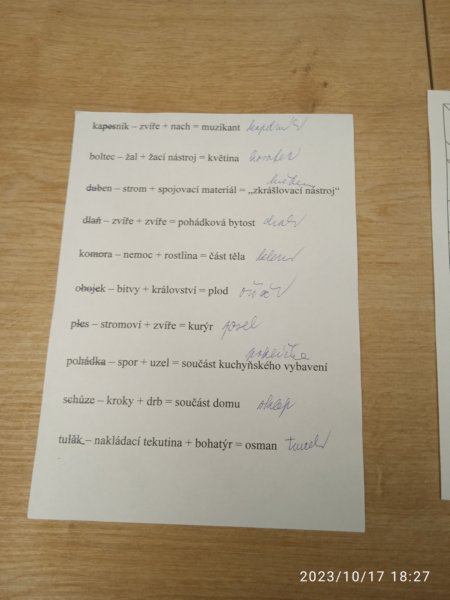 kapesník – zvíře + nach = muzikant
boltec – žal + žací nástroj = květina kosatec
hřeben
duben – strom + spojovací materiál = „zkrášlovací nástroj“
dlaň – zvíře + zvíře = pohádková bytost drak
komora – nemoc + rostlina = část těla
obojek – bitvy + království = plod
ples – stromoví + zvíře = kurýr posel
poklička
pohádka – spor + uzel = součást kuchyňského vybavení
schůze – kroky + drb = součást domu sklep
tulák – nakládací tekutina + bohatýr = osman turek
2023/10/17 18:27